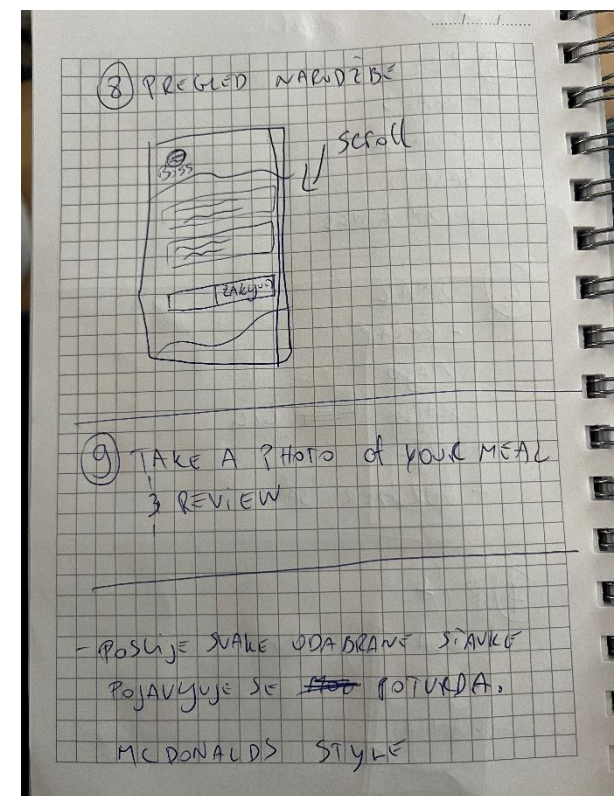 8 PREGLED NARUDŽBE
scroll
ZAKLJUČI
9 TAKE A PHOTO of YOUR MEAL
& REVIEW
- POSLIJE SVAKE ODABRANE STAVKE
POJAVLJUJE SE POTVRDA.
MCDONALDS STYLE